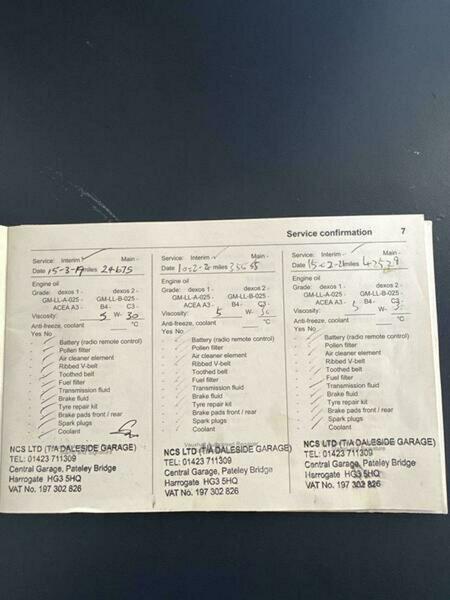 Service confirmation 7
Service: Interim Main -
Date 15-3-19 miles 24675
Engine oil
Grade: dexos 1 - dexos 2 -
GM-LL-A-025 - GM-LL-B-025 -
ACEA A3 - B4 - C3 -
Viscosity: 5 W- 30
Anti-freeze, coolant °C
Yes No
Battery (radio remote control)
Pollen filter
Air cleaner element
Ribbed V-belt
Toothed belt
Fuel filter
Transmission fluid
Brake fluid
Tyre repair kit
Brake pads front / rear
Spark plugs
Coolant
NCS LTD (T/A DALESIDE GARAGE)
TEL: 01423 711309
Central Garage, Pateley Bridge
Harrogate HG3 5HQ
VAT No. 197 302 826
Service: Interim - Main -
Date miles
Engine oil
Grade: dexos 1 - dexos 2 -
GM-LL-A-025 - GM-LL-B-025 -
ACEA A3 - B4 - C3 -
Viscosity: 5 W- 30
Anti-freeze, coolant °C
Yes No
Battery (radio remote control)
Pollen filter
Air cleaner element
Ribbed V-belt
Toothed belt
Fuel filter
Transmission fluid
Brake fluid
Tyre repair kit
Brake pads front / rear
Spark plugs
Coolant
NCS LTD (T/A DALESIDE GARAGE)
TEL: 01423 711309
Central Garage, Pateley Bridge
Harrogate HG3 5HQ
VAT No. 197 302 826
Service: Interim - Main -
Date miles
Engine oil
Grade: dexos 1 - dexos 2 -
GM-LL-A-025 - GM-LL-B-025 -
ACEA A3 - B4 - C3 -
Viscosity: 5 W-
Anti-freeze, coolant °C
Yes No
Battery (radio remote control)
Pollen filter
Air cleaner element
Ribbed V-belt
Toothed belt
Fuel filter
Transmission fluid
Brake fluid
Tyre repair kit
Brake pads front / rear
Spark plugs
Coolant
NCS LTD (T/A DALESIDE GARAGE)
TEL: 01423 711309
Central Garage, Pateley Bridge
Harrogate HG3 5HQ
VAT No. 197 302 826